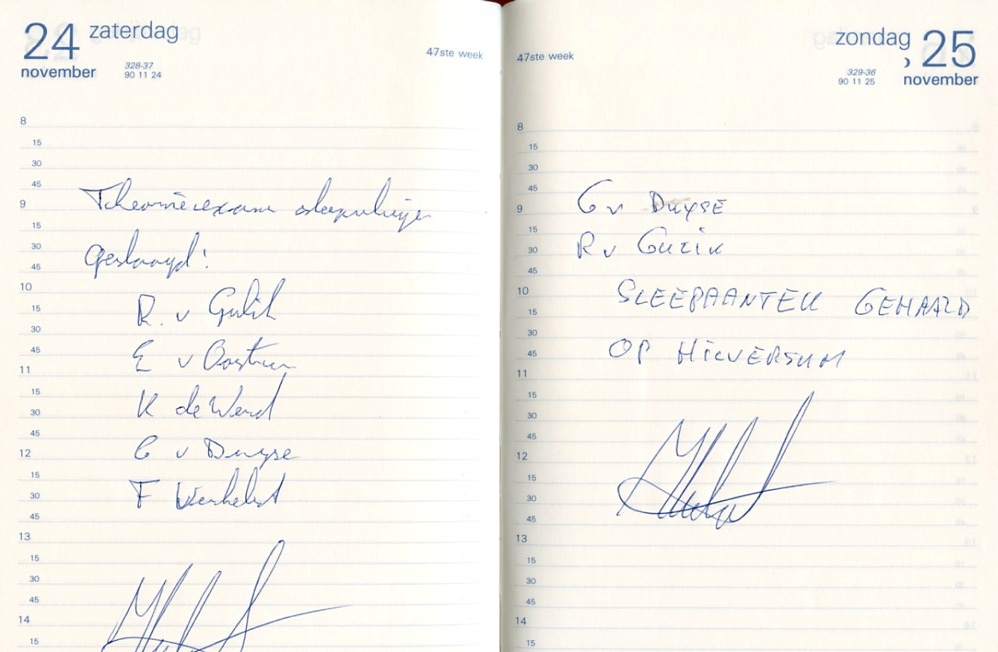 24 zaterdag
november
328-37
90 11 24
47ste week
8
15
30
45
9 Theorieexam sleepvliegen
15
30 geslaagd!
45
10
15 R. v Gulik
30
45 E v Oostrum
11
15
30 K de Werd
45
12 C v Duyse
15
30 F Verhelst
45
13
15
30
45
14
15
47ste week
zondag 25
november
329-36
90 11 25
8
15
30
45
9 C v Duyse
15
30 R v Gulik
45
10 SLEEPAANTEK GEHAALD
15
30
45 OP HILVERSUM
11
15
30
45
12
15
30
45
13
15
30
45
14
15